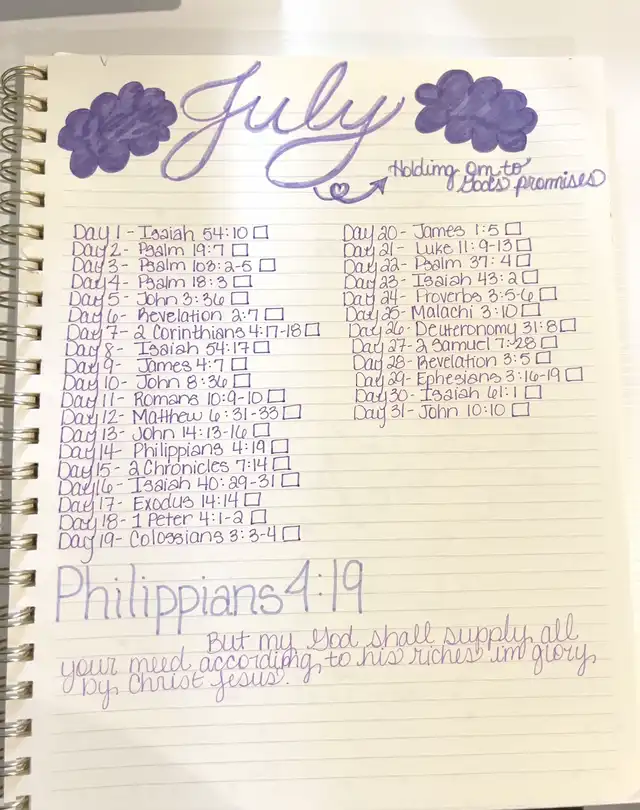 July
Holding on to
God's promises
Day 1 - Isaiah 54:10
Day 2 - Psalm 19:7
Day 3 - Psalm 103:2-5
Day 4 - Psalm 18:3
Day 5 - John 3:36
Day 6 - Revelation 2:7
Day 7 - 2 Corinthians 4:17-18
Day 8 - Isaiah 54:17
Day 9 - James 4:7
Day 10 - John 8:36
Day 11 - Romans 10:9-10
Day 12 - Matthew 6:31-33
Day 13 - John 14:13-16
Day 14 - Philippians 4:19
Day 15 - 2 Chronicles 7:14
Day 16 - Isaiah 40:29-31
Day 17 - Exodus 14:14
Day 18 - 1 Peter 4:1-2
Day 19 - Colossians 3:3-4
Day 20 - James 1:5
Day 21 - Luke 11:9-13
Day 22 - Psalm 37:4
Day 23 - Isaiah 43:2
Day 24 - Proverbs 3:5-6
Day 25 - Malachi 3:10
Day 26 - Deuteronomy 31:8
Day 27 - 2 Samuel 7:28
Day 28 - Revelation 3:5
Day 29 - Ephesians 3:16-19
Day 30 - Isaiah 61:1
Day 31 - John 10:10
Philippians 4:19
But my God shall supply all
your need according to his riches in glory
by Christ Jesus.